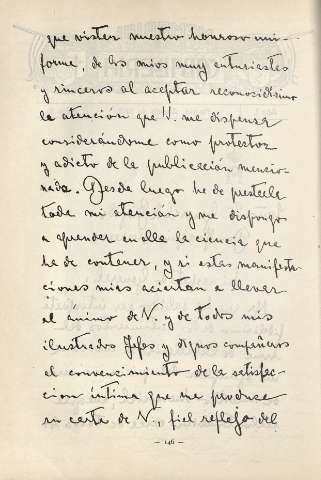 que visten nuestro honroso uni-
forme, de los mios muy entusiastas
y sinceros al aceptar reconocidísimo
la atención que V. me dispensa
considerándome como protector
y adicto de la publicación mencio-
nada. Desde luego he de prestarla
toda mi atención y me dispongo
a aprender en ella la ciencia que
ha de contener, y si estas manifesta
ciones mias aciertan a llevar
al ánimo de V. y de todos mis
ilustrados Jefes y dignos compañeros
el convencimiento de la satisfac-
cion íntima que me produce
su carta de V, fiel reflejo del
- 146 -